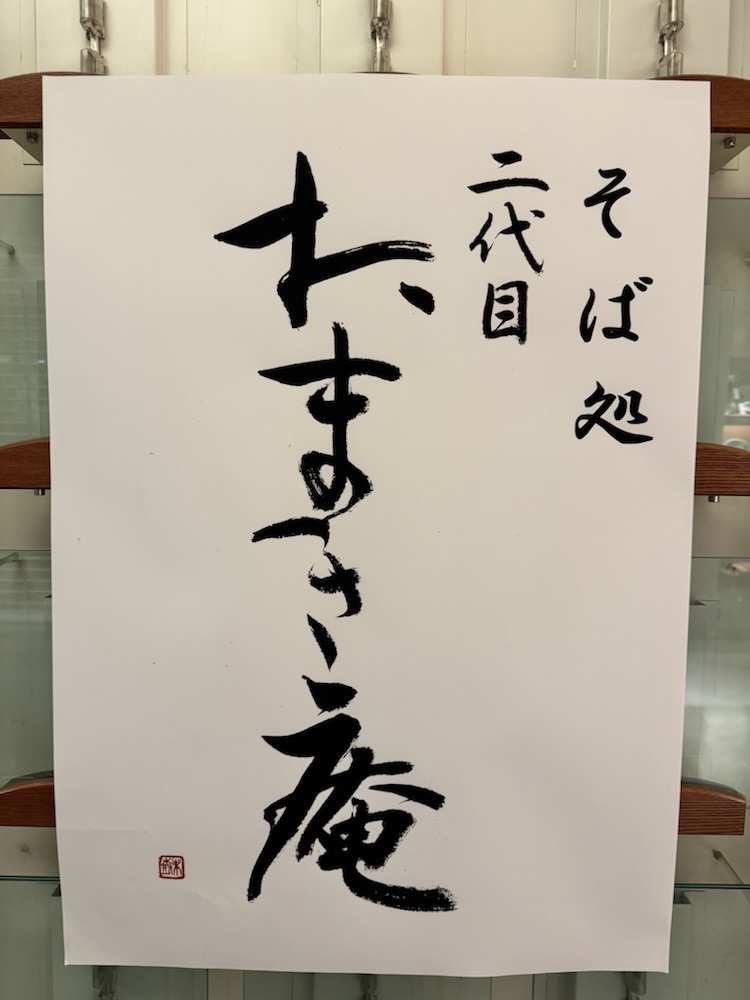 そば処
二代目
おまさ庵